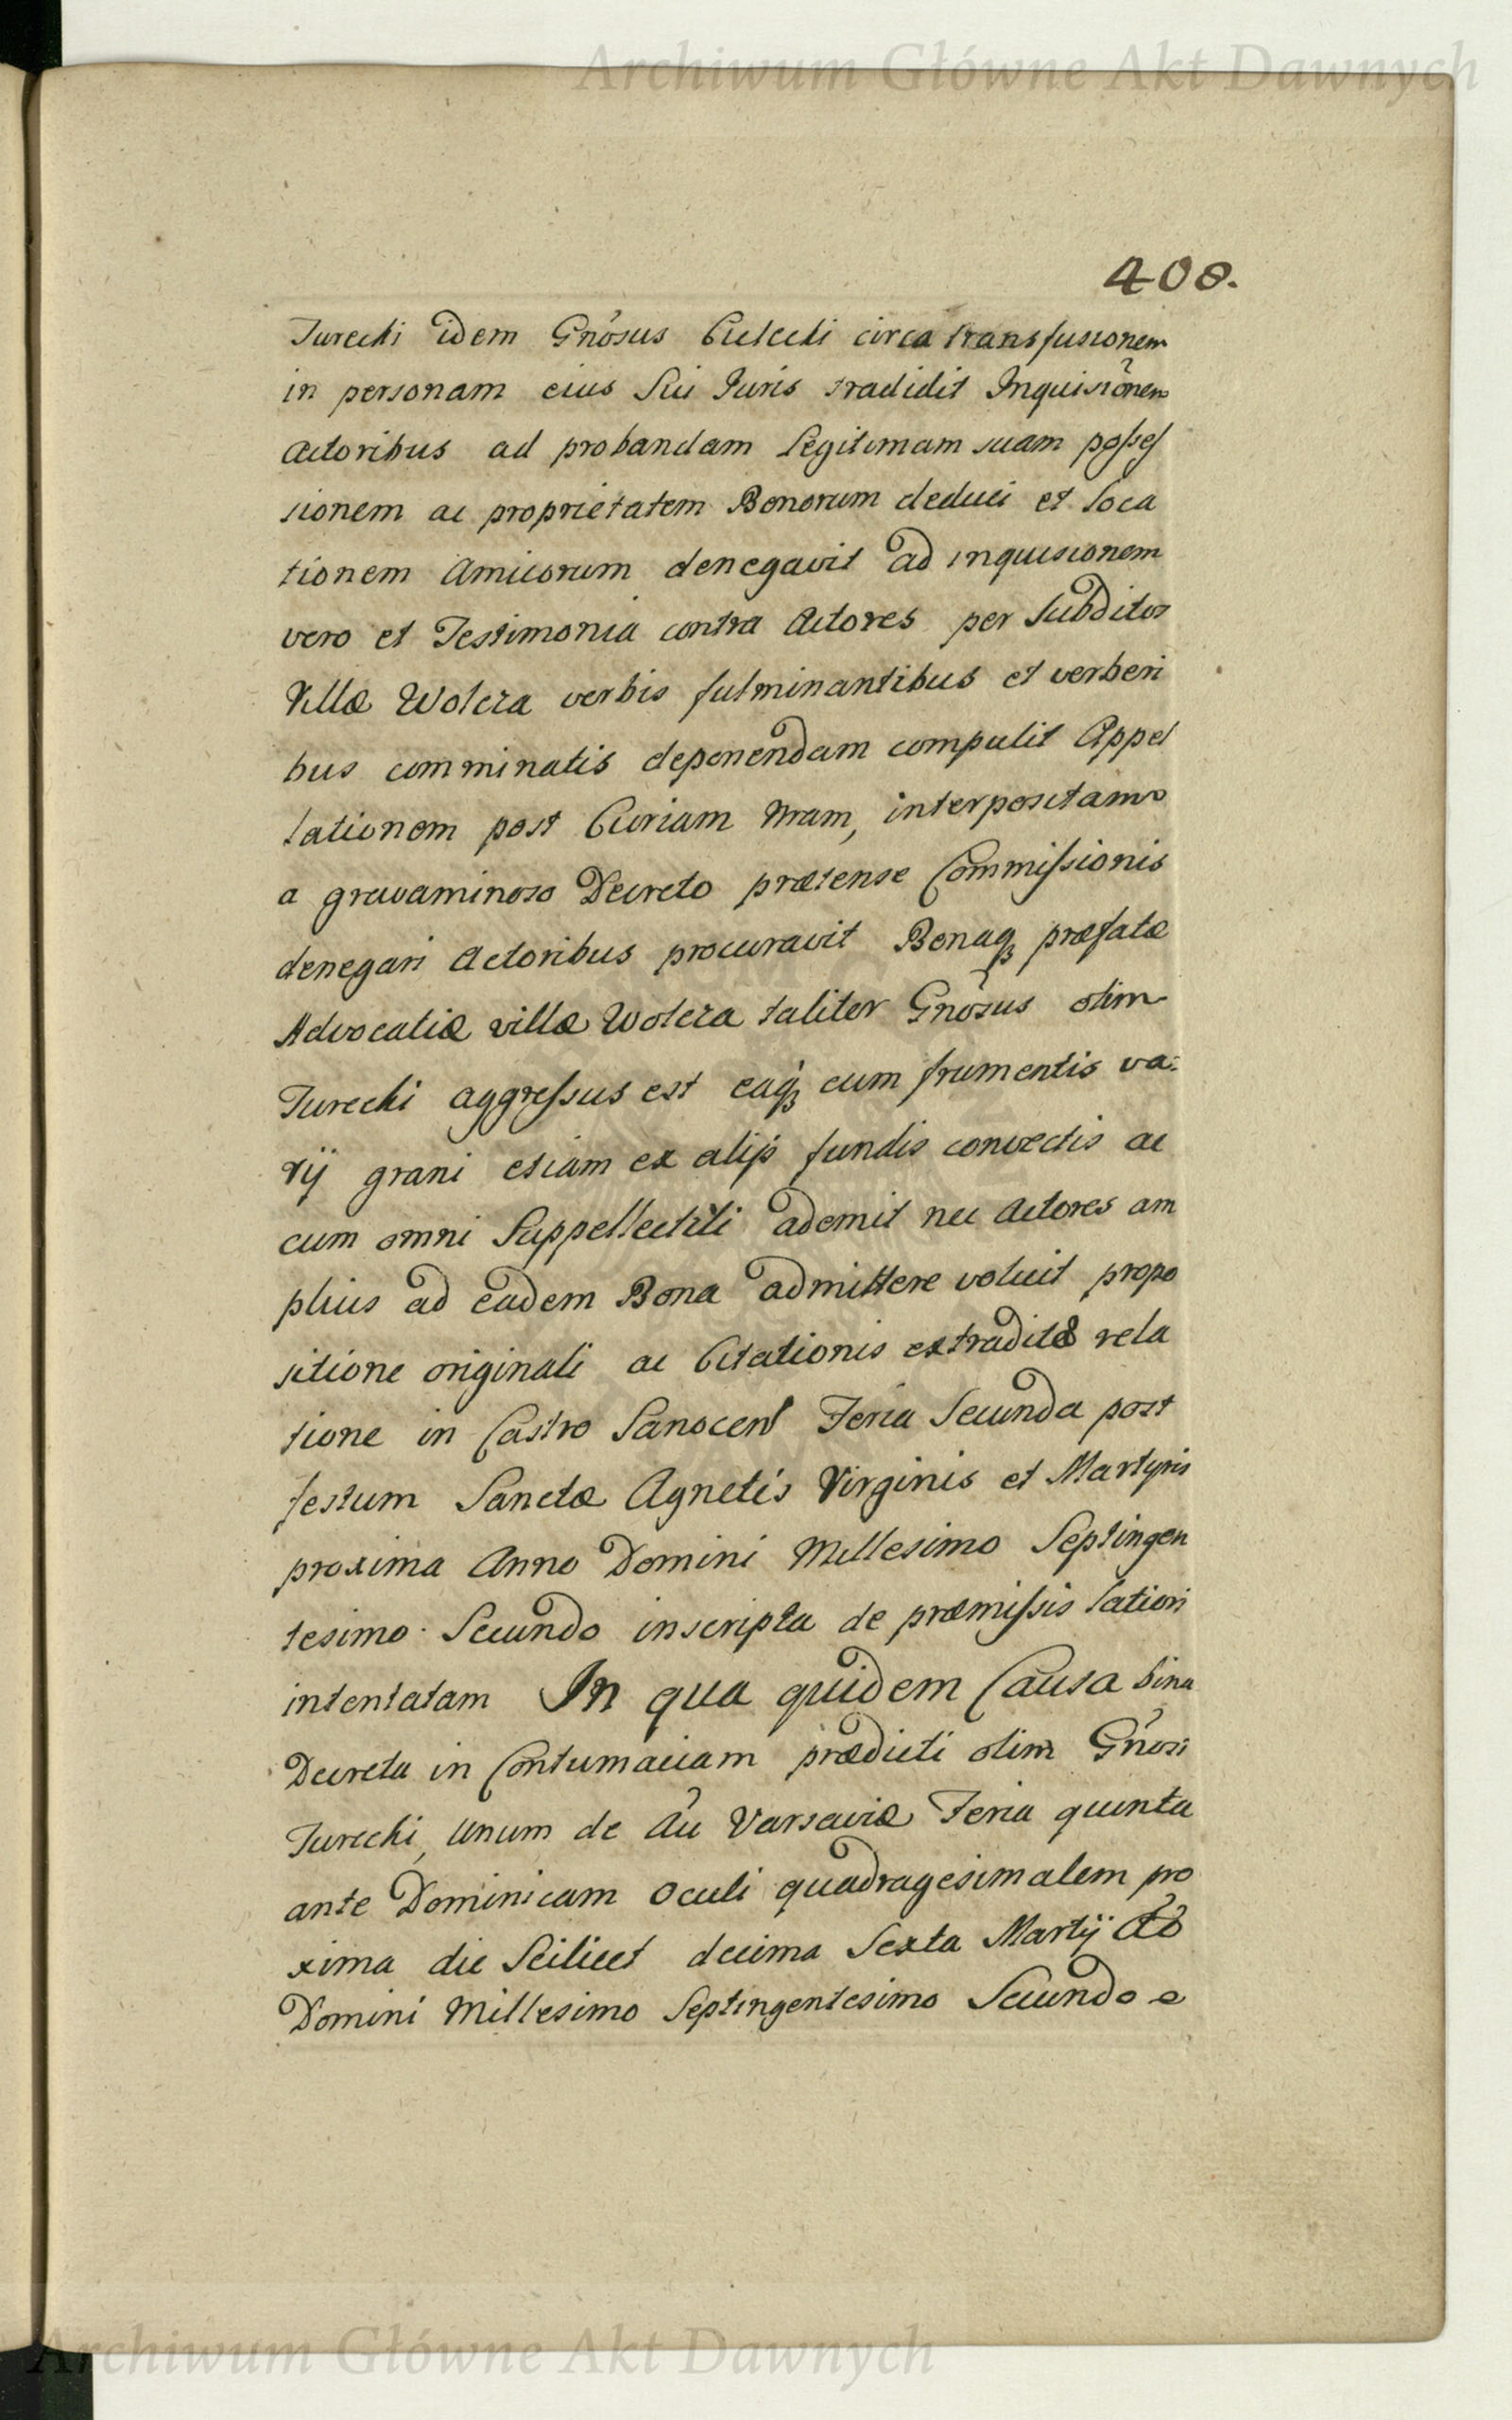 Archiwum Główne Akt Dawnych
408.
Turecki idem Gnõsus Cielecki circa transfusionem
in personam eius Sui Juris tradidit Inquisiõnem
Actoribus ad probandam Legitimam suam posses
sionem ac proprietatem Bonorum deduci et loca
tionem Amicorum denegavit ad inquisionem
vero et Testimonia contra Actores per Subditos
Villæ Wolcza verbis fulminantibus et verberi
bus comminatis deponendam compulit Appel
lationem post Curiam Nram, interpositam
a gravaminoso Decreto prætense Commissionis
denegari Actoribus procuravit Bonaq præfatæ
Advocatiæ villæ Wolcza taliter Gnõsus olim
Turecki aggressus est eaq cum frumentis va:
rij grani etiam ex alijs fundis convectis ac
cum omni Suppellectili ademit nec Actores am
plius ad eadem Bona admittere voluit propo
sitione originali ac Citationis extraditæ rela
tione in Castro Sanocen Feria Secunda post
festum Sanctæ Agnetis Virginis et Martyris
proxima Anno Domini Millesimo Septingen
tesimo Secundo inscripta de præmissis latiori
intentatam In qua quidem Causa bina
Decreta in Contumaciam prædicti olim Gnõsi
Turecki, Unum de Aũ Varsaviæ Feria quinta
ante Dominicam Oculi quadragesimalem pro
xima die Scilicet decima Sexta Martij Aõ
Domini Millesimo Septingentesimo Secundo
Archiwum Główne Akt Dawnych